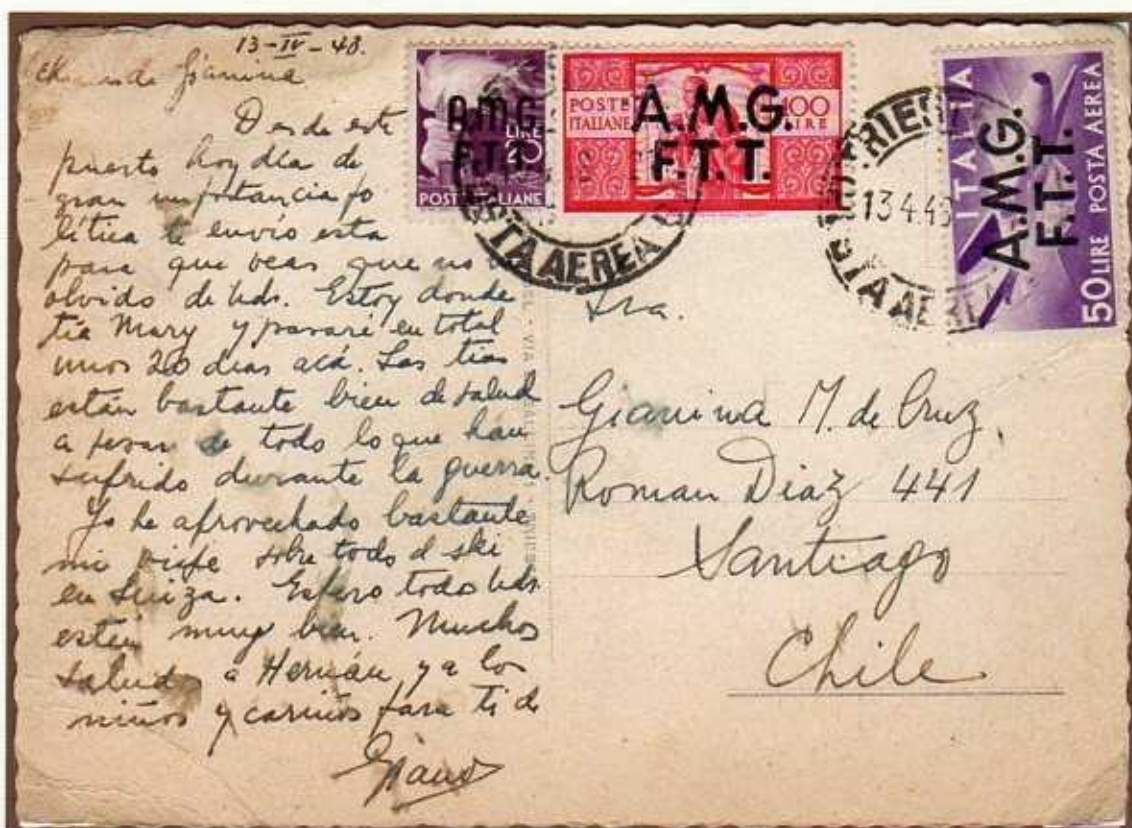 13-IV-48.
Gianina
Desde este
puerto hoy día de
gran importancia po
lítica te envío esta
para que veas que no
olvido de Uds. Estoy donde
tía Mary y pasaré en total
unos 20 dias acá. Las tias
están bastante bien de salud
a pesar de todo lo que han
sufrido durante la guerra.
Yo he aprovechado bastante
mi viaje sobre todo el ski
en Suiza. Espero todos Uds
estén muy bien. Muchos
saludos a Hernán y a los
niños y cariños para ti de
A.M.G.
F.T.T.
LIRE
20
POSTE ITALIANE
POSTE
ITALIANE
100
LIRE
A.M.G.
F.T.T.
POSTA AEREA
TRIESTE
13.4.48
POSTA AEREA
ITALIA
50 LIRE POSTA AEREA
A.M.G.
F.T.T.
Sra.
Gianina M. de Cruz
Roman Diaz 441
Santiago
Chile